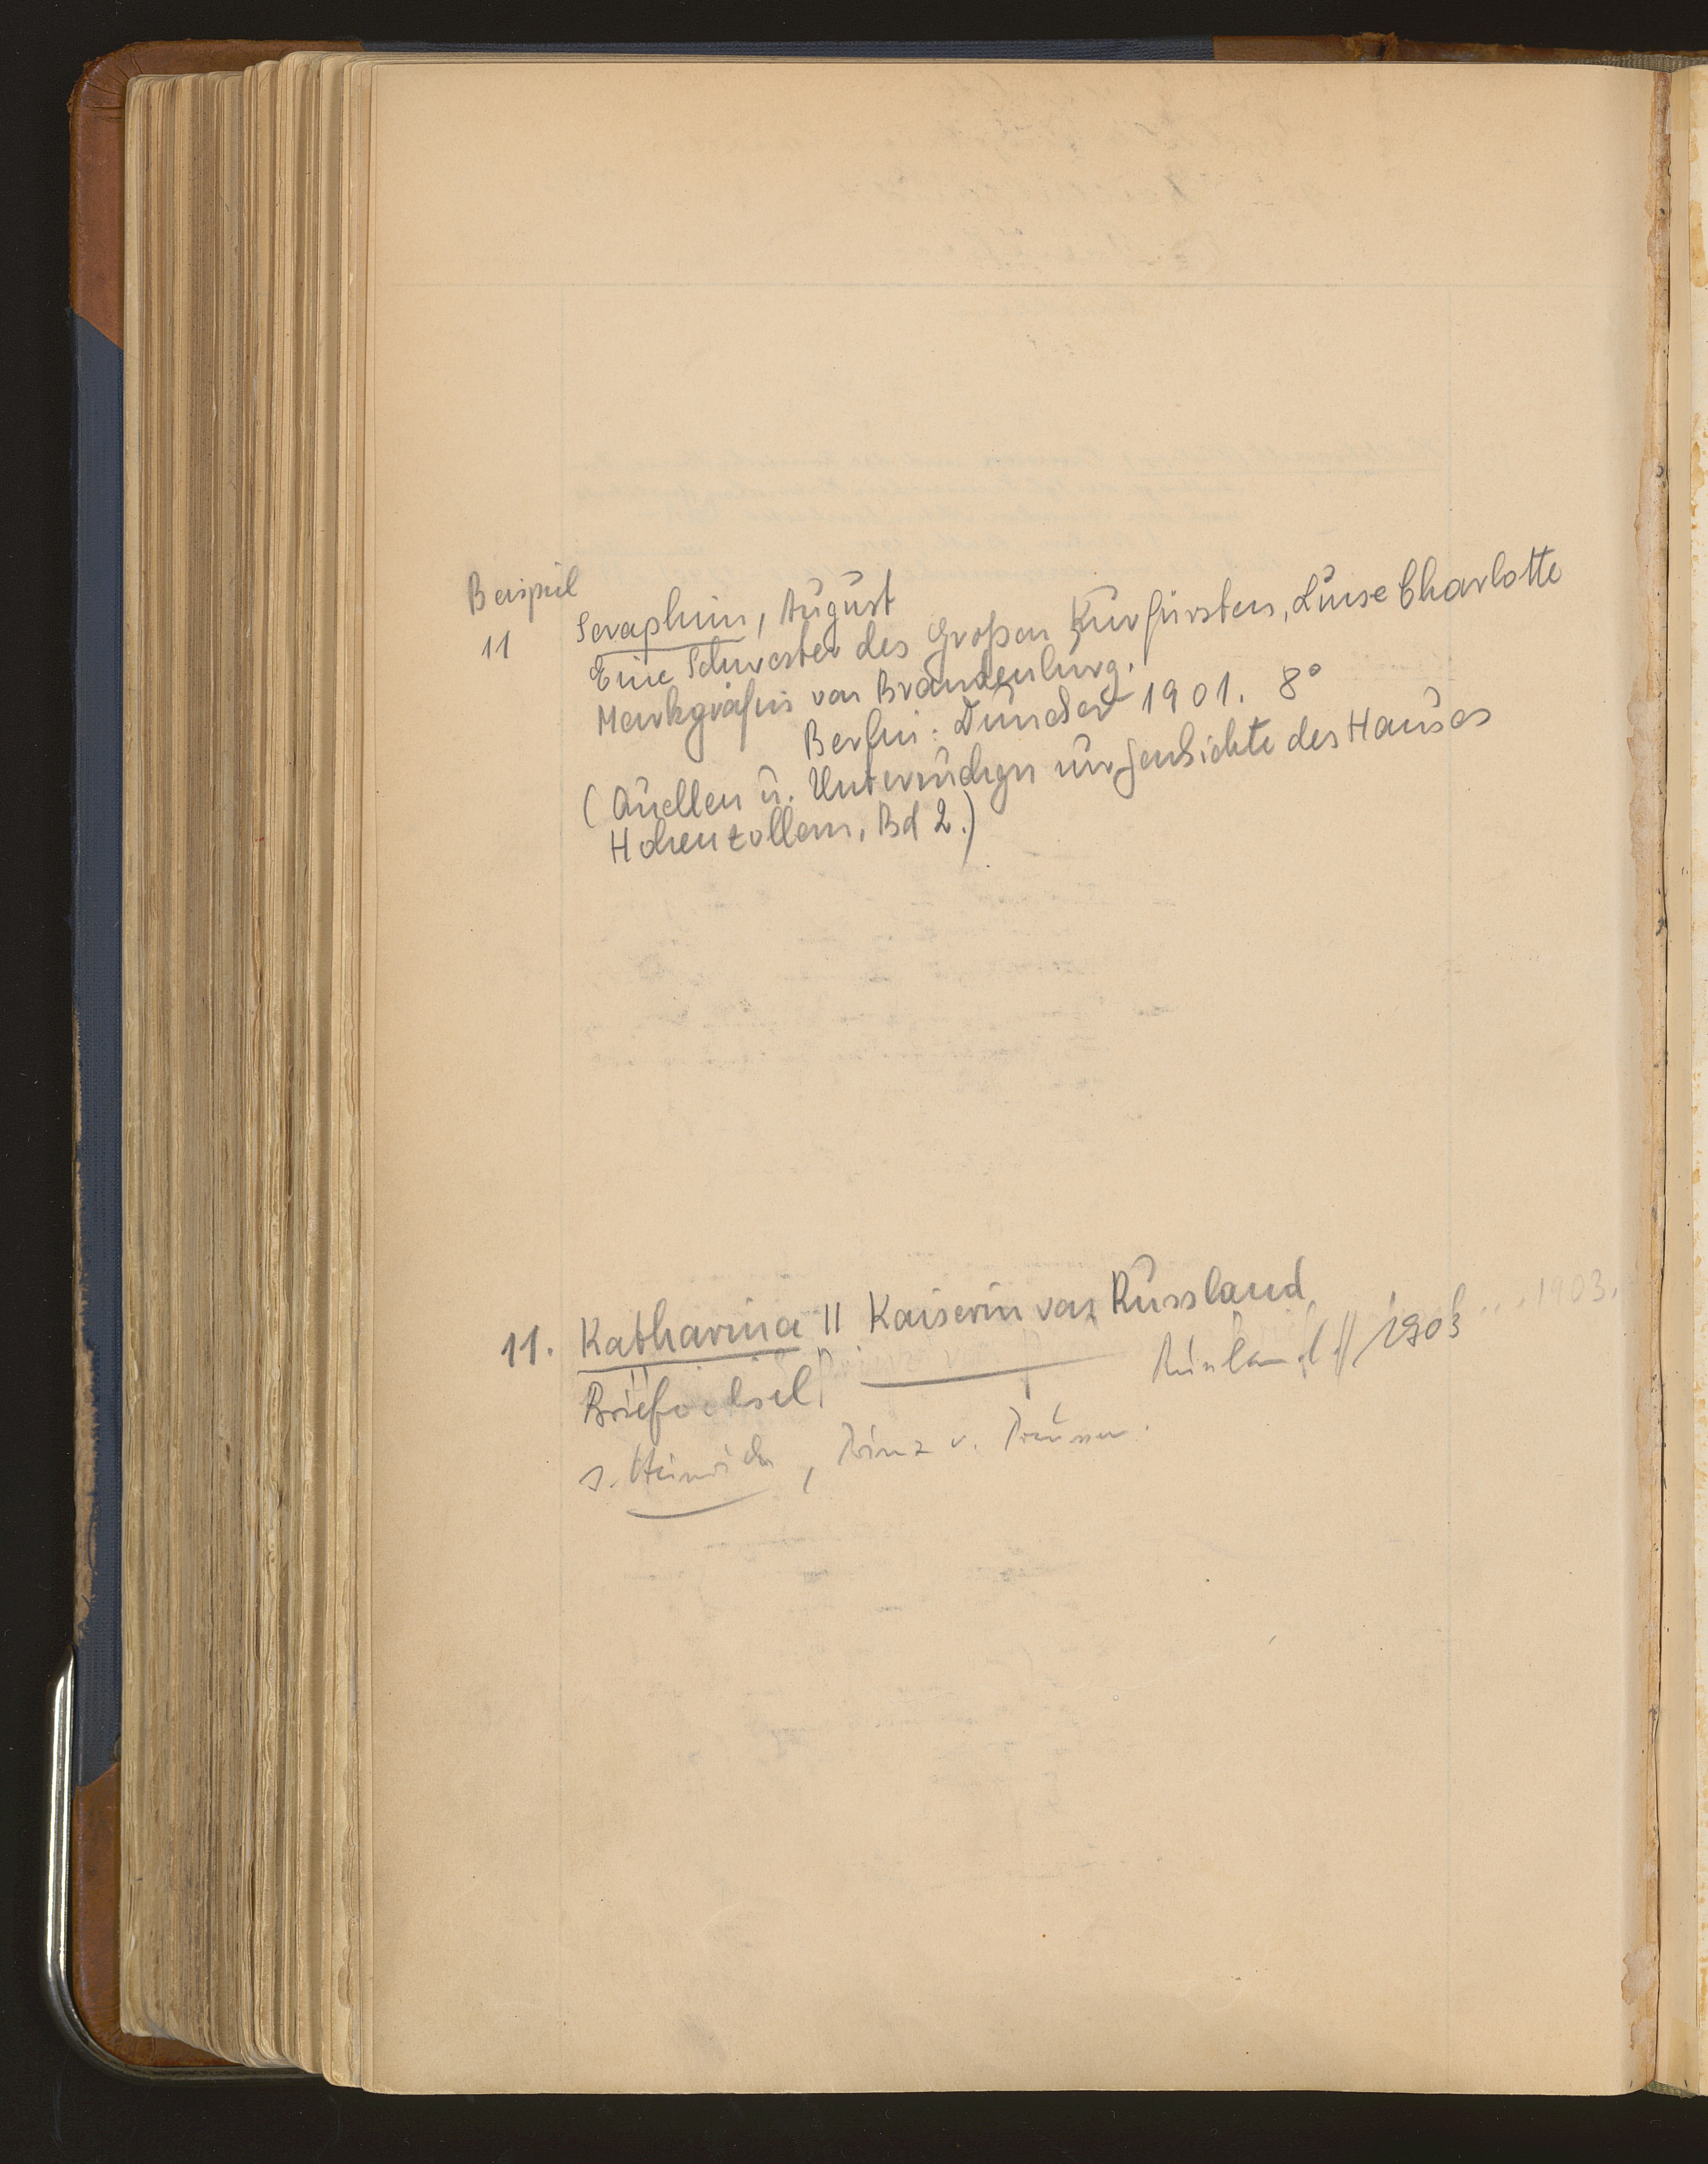 Beispiel
11
Seraphim, August
Eine Schwester des Großen Kurfürsten, Luise Charlotte
Markgräfin von Brandenburg.
Berlin: Duncker 1901. 8°
(Quellen u. Untersuchgn zur Geschichte des Hauses
Hohenzollern, Bd 2.)
11. Katharina II Kaiserin von Russland
Briefwechsel Prinz Russland 1903 1903.
s. Heinrich, Prinz v. Preussen.